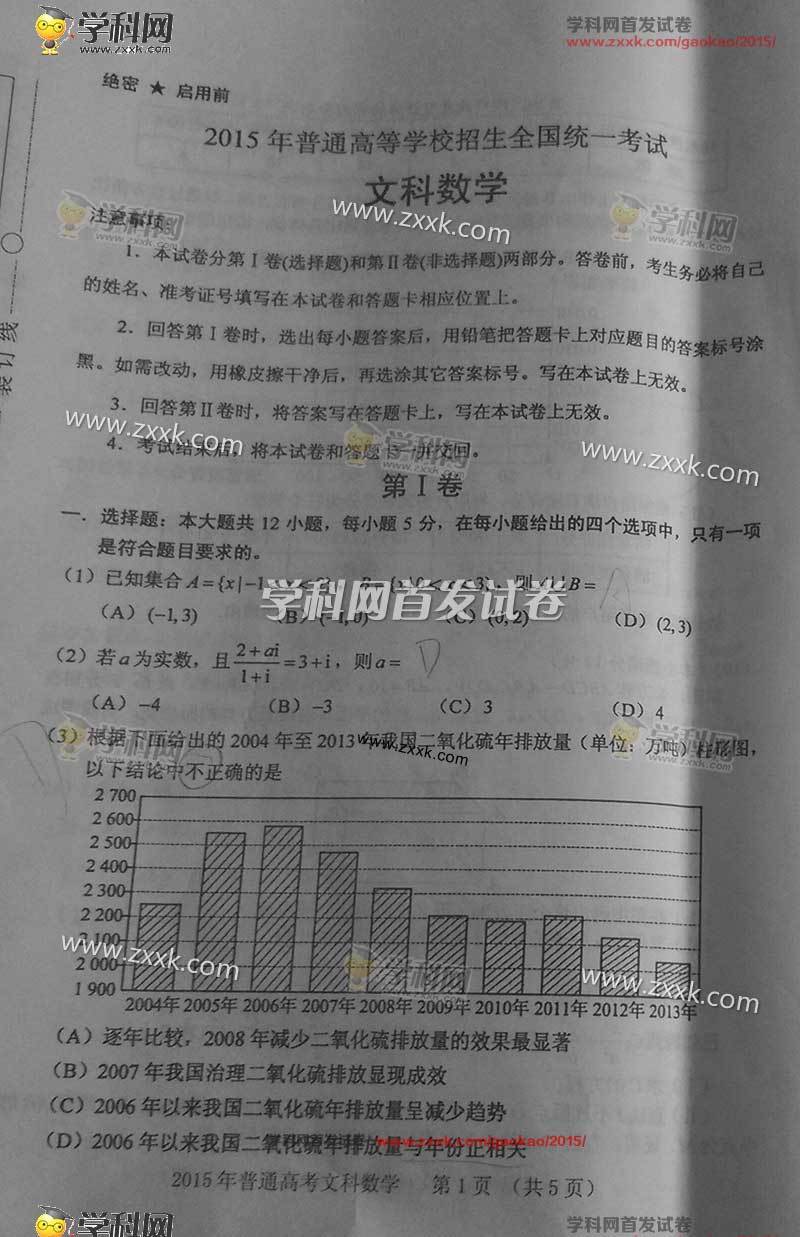 学科网
www.zxxk.com
学科网首发试卷
www.zxxk.com/gaokao/2015/
绝密 ★ 启用前
2015 年普通高等学校招生全国统一考试
文科数学
www.zxxk.com
学科网
www.zxxk.com
学科网
www.zxxk.com
注意事项:
1. 本试卷分第 I 卷(选择题)和第 II 卷(非选择题)两部分。答卷前,考生务必将自己
的姓名、准考证号填写在本试卷和答题卡相应位置上。
2. 回答第 I 卷时,选出每小题答案后,用铅笔把答题卡上对应题目的答案标号涂
黑。如需改动,用橡皮擦干净后,再选涂其它答案标号。写在本试卷上无效。
3. 回答第 II 卷时,将答案写在答题卡上,写在本试卷上无效。
www.zxxk.com
4. 考试结束后,将本试卷和答题卡一并交回。
学科网
www.zxxk.com
装订线
第 I 卷
一. 选择题:本大题共 12 小题,每小题 5 分,在每小题给出的四个选项中,只有一项
是符合题目要求的。
(1) 已知集合 A={x|-1 x<2}, B={x|0<x<3},则A∪B= A
学科网首发试卷
(A) (-1,3) (B) (-1,0) (C) (0,2) (D) (2,3)
(2) 若a为实数,且(2+ai)/(1+i)=3+i,则a= D
(A) -4 (B) -3 (C) 3 (D) 4
学科网
www.zxxk.com
学科网
www.zxxk.com
(3) 根据下面给出的 2004 年至 2013 年我国二氧化硫年排放量(单位:万吨)柱形图,
www.zxxk.com
以下结论中不正确的是
2 700
2 600
2 500
2 400
2 300
2 200
2 100
2 000
1 900
www.zxxk.com
学科网
www.zxxk.com
www.zxxk.com
2004年 2005年 2006年 2007年 2008年 2009年 2010年 2011年 2012年 2013年
(A) 逐年比较,2008 年减少二氧化硫排放量的效果最显著
(B) 2007 年我国治理二氧化硫排放显现成效
(C) 2006 年以来我国二氧化硫年排放量呈减少趋势
(D) 2006 年以来我国二氧化硫年排放量与年份正相关
学科网首发试卷 www.zxxk.com/gaokao/2015/
2015 年普通高考文科数学 第 1 页 (共 5 页)
学科网
www.zxxk.com
学科网首发试卷